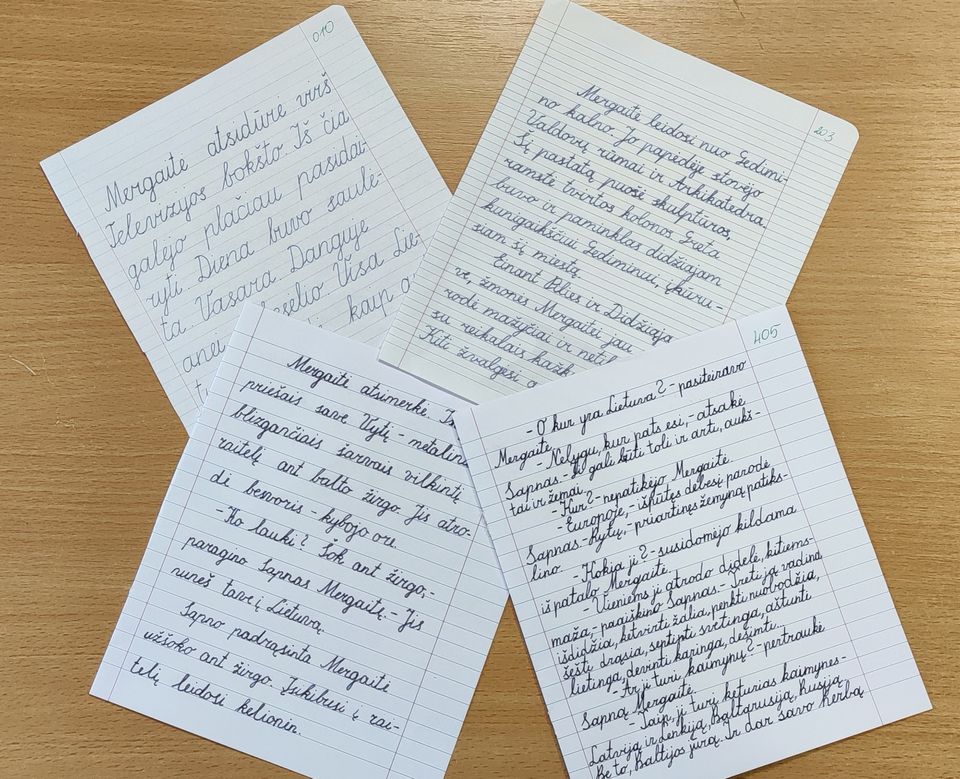 010
Mergaitė atsidūrė virš
Televizijos bokšto. Iš čia
galėjo plačiau pasidai-
ryti. Diena buvo saulė-
ta. Vasara Danguje
anei
Visa Lie-
kaip
203
Mergaitė leidosi nuo Gedimi-
no kalno. Jo papėdėje stovėjo
Valdovų rūmai ir Arkikatedra.
Šį pastatą puošė skulptūros,
ramstė tvirtos kolonos. Greta
buvo ir paminklas didžiajam
kunigaikščiui Gediminui, įkūru-
siam šį miestą.
Einant Pilies ir Didžiąja
ve, žmonės Mergaitei jau
rodė mažyčiai ir
su reikalais
Kiti žvalgėsi
Mergaitė atsimerkė.
priešais save Vytį - metalini
blizgančiais šarvais vilkintį
raitelį ant balto žirgo. Jis atro-
dė besvoris - kybojo ore.
- Ko lauki? Šok ant žirgo, -
paragino Sapnas Mergaitę. - Jis
nuneš tave į Lietuvą.
Sapno padrąsinta Mergaitė
užšoko ant žirgo. Įsikibusi į rai-
telį leidosi kelionėn.
405
- O kur yra Lietuva? - pasiteiravo
Mergaitė.
- Nelygu, kur pats esi, - atsakė
Sapnas. - Ji gali būti toli ir arti, aukš-
tai ir žemai.
- Kur? - nepatikėjo Mergaitė.
- Europoje, - išpūtęs debesį parodė
Sapnas - Rytų, - priartinęs žemyną patiks-
lino.
- Kokia ji? - susidomėjo kildama
iš patalo Mergaitė.
- Vieniems ji atrodo didelė, kitiems -
maža, - paaiškino Sapnas. - Treti ją vadina
išdidžia, ketvirti žalia, penkti nuobodžia,
šešti drąsia, septinti svetinga, aštunti
lietinga, devinti karinga, dešimti...
- Ar ji turi kaimynų? - pertraukė
Sapną Mergaitė.
- Taip, ji turi keturias kaimynes -
Latviją ir Lenkiją, Baltarusiją, Rusiją.
Be to, Baltijos jūrą. Ir dar savo herbą